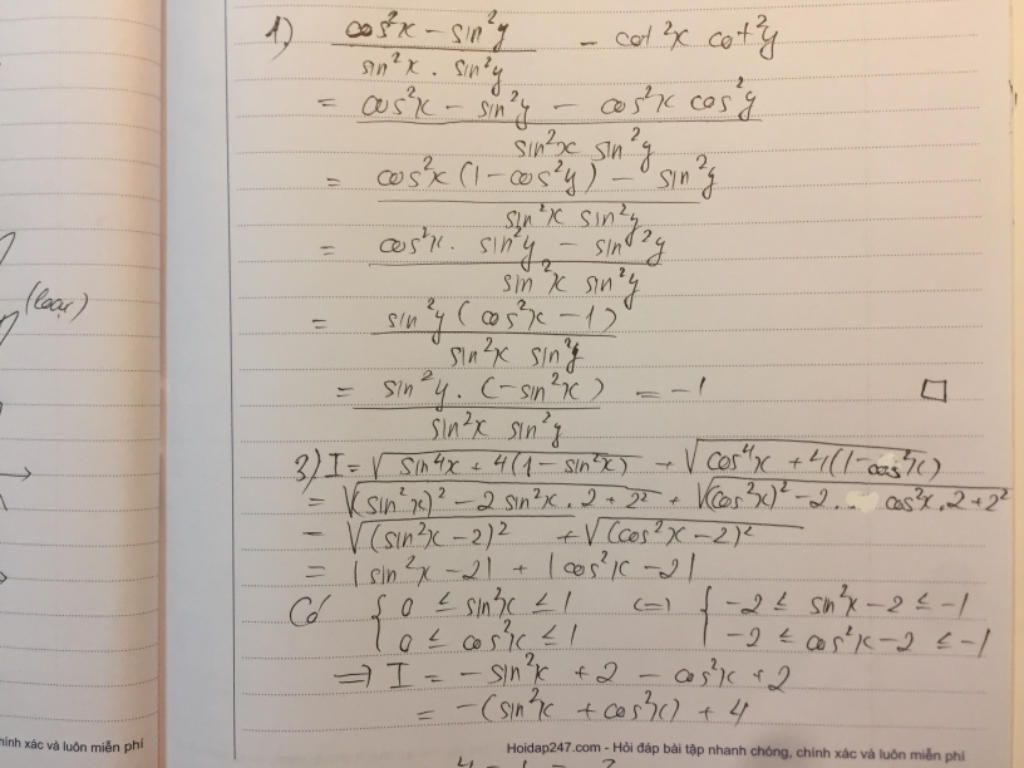 1) (cos²x - sin²y) / (sin²x . sin²y) - cot²x cot²y
= (cos²x - sin²y - cos²x cos²y) / (sin²x sin²y)
= (cos²x (1 - cos²y) - sin²y) / (sin²x sin²y)
= (cos²x . sin²y - sin²y) / (sin²x sin²y)
(loại)
= (sin²y (cos²x - 1)) / (sin²x sin²y)
= (sin²y . (-sin²x)) / (sin²x sin²y) = -1 □
3) I = √(sin⁴x + 4(1 - sin²x)) + √(cos⁴x + 4(1 - cos²x))
= √((sin²x)² - 2 sin²x . 2 + 2²) + √((cos²x)² - 2 . cos²x . 2 + 2²)
= √((sin²x - 2)²) + √((cos²x - 2)²)
= |sin²x - 2| + |cos²x - 2|
Có { 0 ≤ sin²x ≤ 1 (=) { -2 ≤ sin²x - 2 ≤ -1
0 ≤ cos²x ≤ 1 -2 ≤ cos²x - 2 ≤ -1
=> I = -sin²x + 2 - cos²x + 2
= -(sin²x + cos²x) + 4
hính xác và luôn miễn phí
Hoidap247.com - Hỏi đáp bài tập nhanh chóng, chính xác và luôn miễn phí